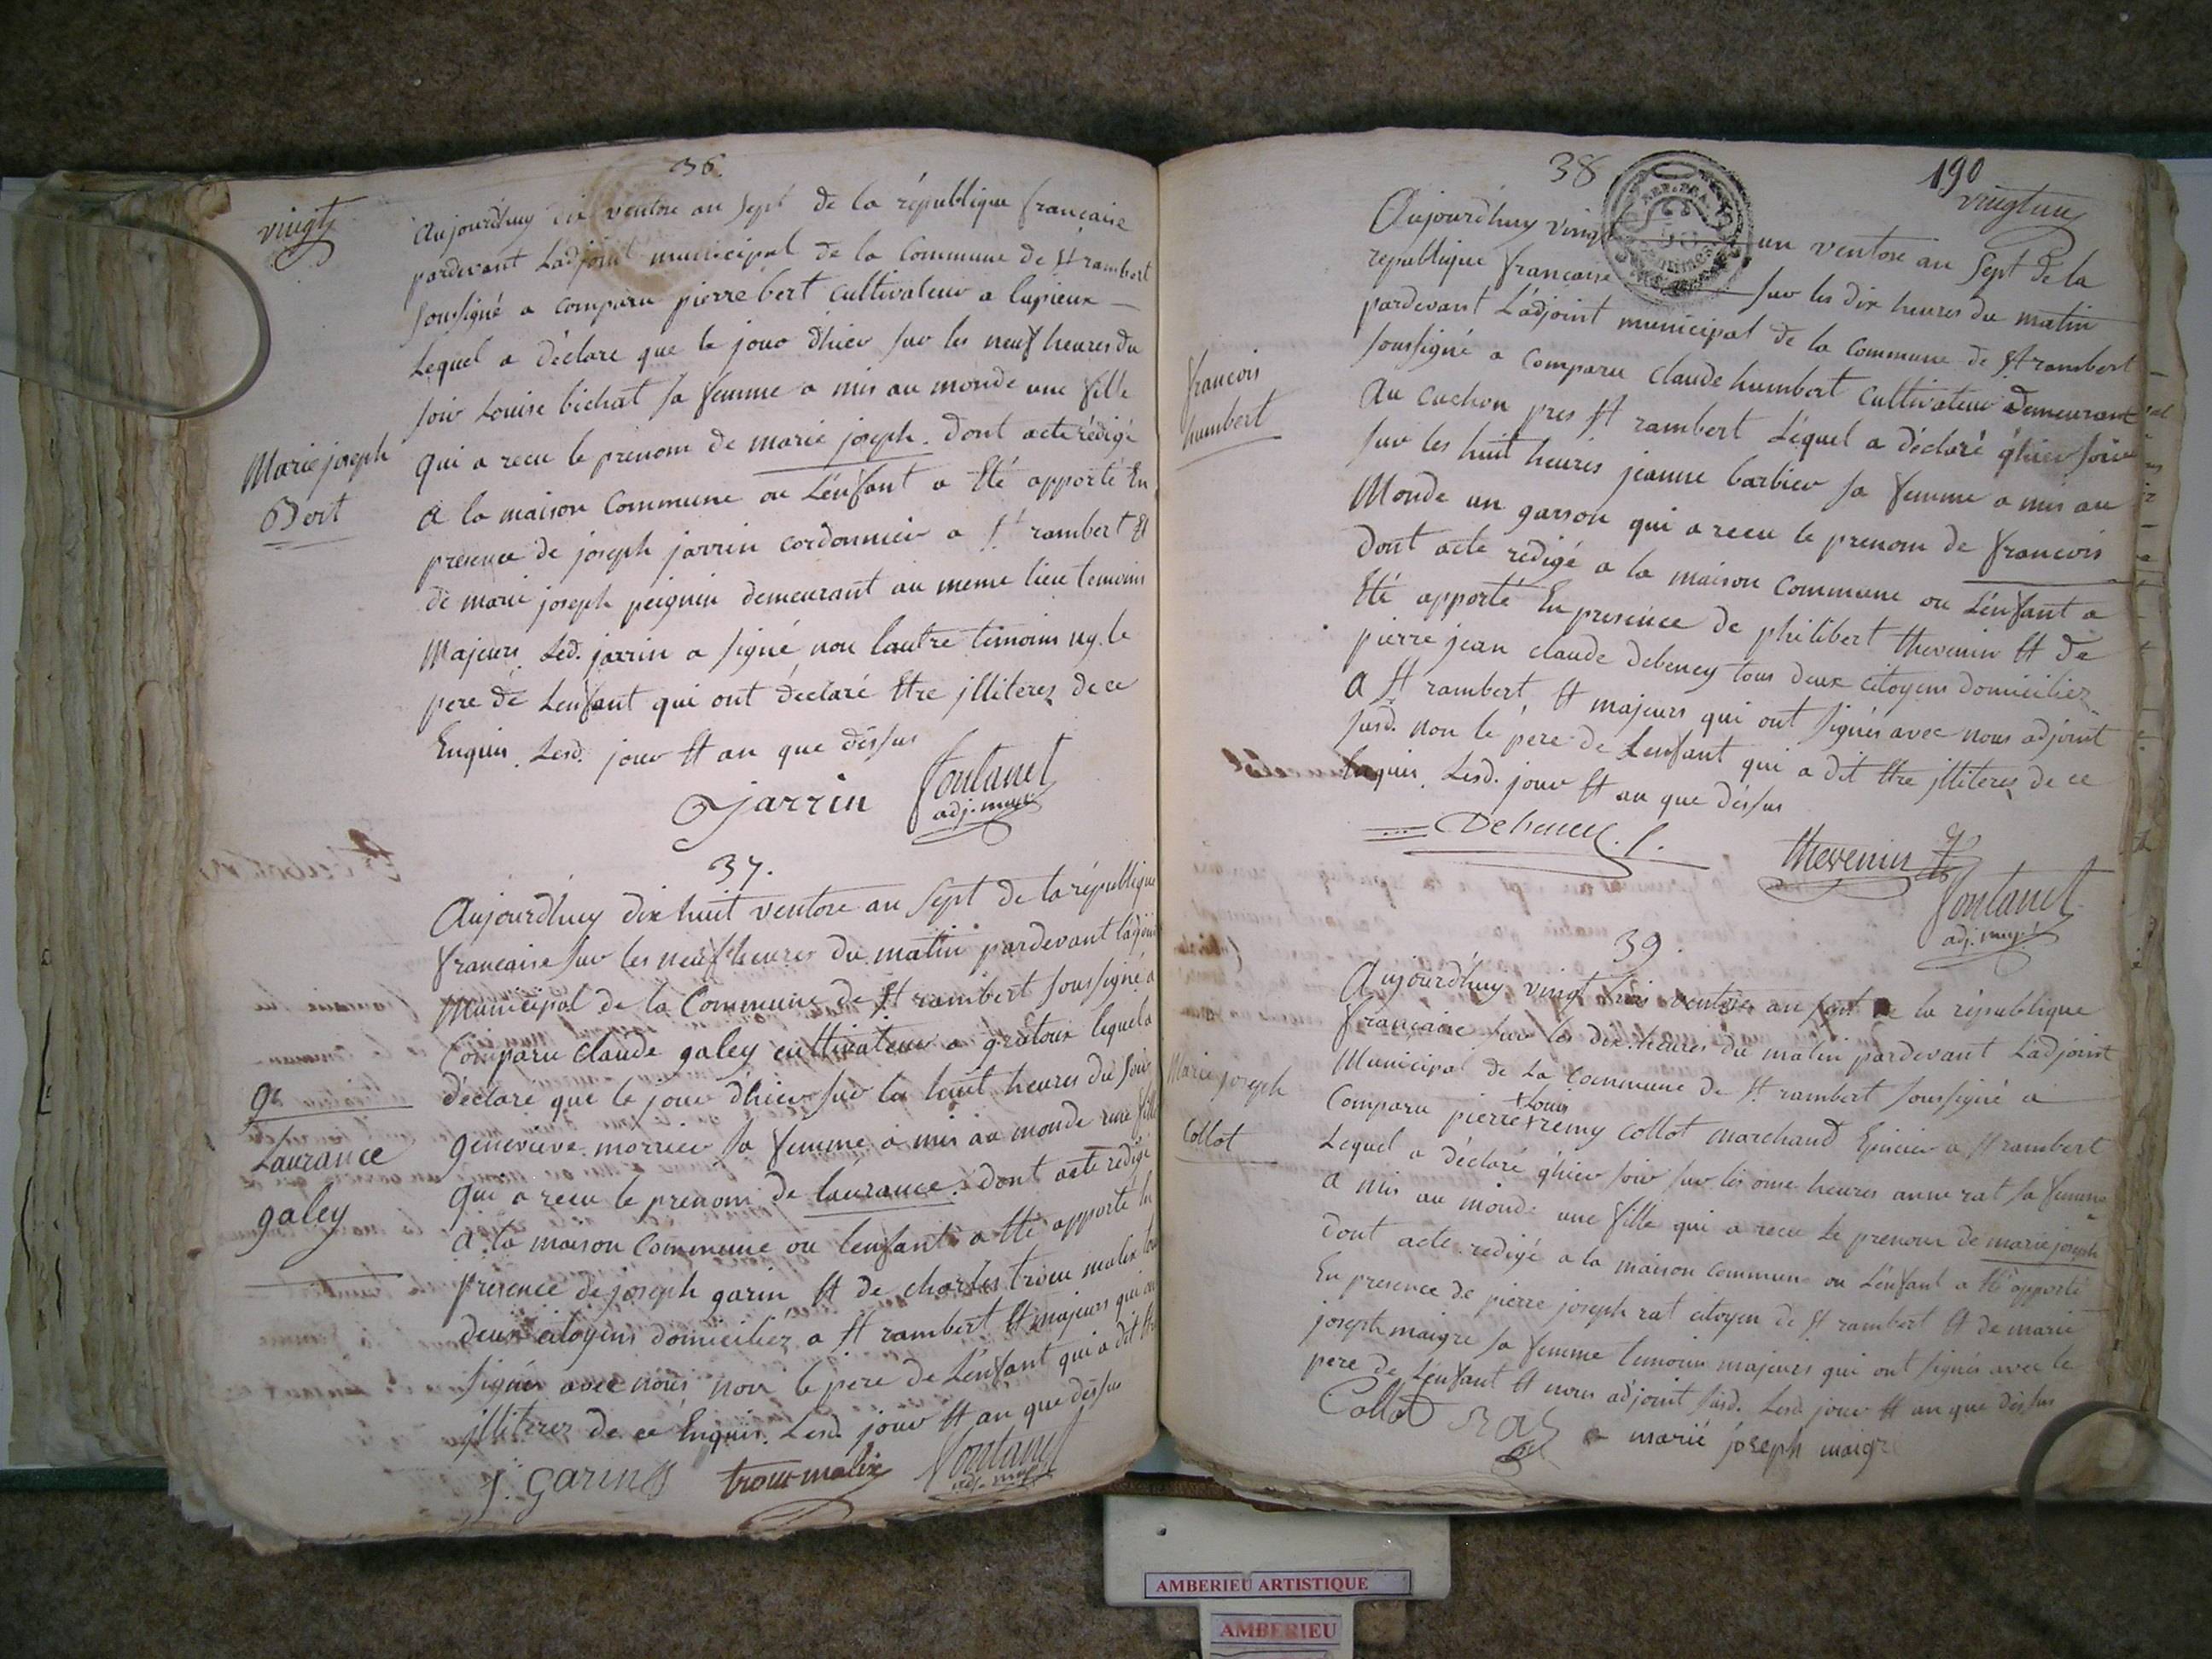 36.
vingt
Aujourdhuy dix ventose an Sept de la république francaise
pardevant Ladjoint municipal de la Commune de St rambert
soussigné a comparu pierre bert cultivateur a lupieux
Lequel a déclaré que le jour dhier sur les neuf heures du
soir Louise bichat sa femme a mis au monde une fille
Marie joseph
Bert
qui a recu le prenom de marie joseph. dont acte rédigé
a la maison Commune ou Lénfant a Eté apporté En
presence de joseph jarrin cordonnier a St rambert Et
de marie joseph peignin demeurant au meme lieu temoins
Majeurs Led. jarrin a signé non lautre temoins ny le
pere de Lenfant qui ont déclaré Etre jlliterez de ce
Enquis. Lesd. jour Et an que dessus
Jarrin Fontanet
adj. mupl
37.
Aujourdhuy dix huit ventose an Sept de la république
francaise sur les neuf heures du matin pardevant ladjoint
Municipal de la Commune de St rambert soussigné a
Comparu Claude galey cultivateur a grattoux lequel a
déclaré que le jour dhier sur les huit heures du soir
genevieve morrier sa femme a mis au monde une fille
Laurance
galey
qui a recu le prenom de laurance. dont acte redigé
a la maison Commune ou lenfant a Eté apporté En
presence de joseph garin Et de charles troue malix tous
deux citoyens domiciliez a St rambert Et majeurs qui ont
signés avec nous non le pere de Lénfant qui a dit Etre
jlliterez de ce Enquis. Lesd. jour Et an que dessus
J. Garin trouemalix Fontanet
adj. mupl
38
190
vingtun
Aujourdhuy vingt un ventose an Sept de la
republique francaise sur les dix heures du matin
pardevant Ladjoint municipal de la Commune de St rambert
francois
humbert
soussigné a comparu claude humbert cultivateur demeurant
Au cuchon pres St rambert Léquel a déclaré q'hier soir
sur les huit heures jeanne barbier sa femme a mis au
Monde un garson qui a recu le prenom de francois
dont acte redigé a la maison Commune ou Lénfant a
Eté apporté En presence de philibert thevenin Et de
pierre jean claude debeney tous deux citoyens domiciliez
a St rambert, Et majeurs qui ont signés avec nous adjoint
susd. non le pere de Lenfant qui a dit Etre jlliterez de ce
Enquis. Lesd. jour Et an que dessus
Debeney. thevenin fils
Fontanet
adj. mupl
39.
Aujourdhuy vingt trois ventose an sept de la république
francaise sur les dix heures du matin pardevant Ladjoint
Municipal de La Commune de St rambert soussigné a
Marie joseph
Collot
Louis
Comparu pierre remy Collot marchand Epicier a St rambert
Lequel a déclaré q'hier soir sur les onse heures anne rat sa femme
a mis au monde une fille qui a recu le prenom de marie joseph
dont acte redigé a la maison commune ou Lénfant a Eté apporté
En presence de pierre joseph rat citoyen de St rambert Et de marie
joseph maigre sa femme temoins majeurs qui ont signés avec le
pere de Lénfant Et nous adjoint susd. Lesd. jour Et an que dessus
Collot Rat marie joseph maigre
AMBERIEU ARTISTIQUE
AMBERIEU